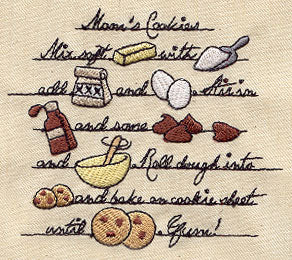 Mom's Cookies
Mix soft with
add and Stir in
and some
and Roll dough into
and bake on cookie sheet
until Yum!